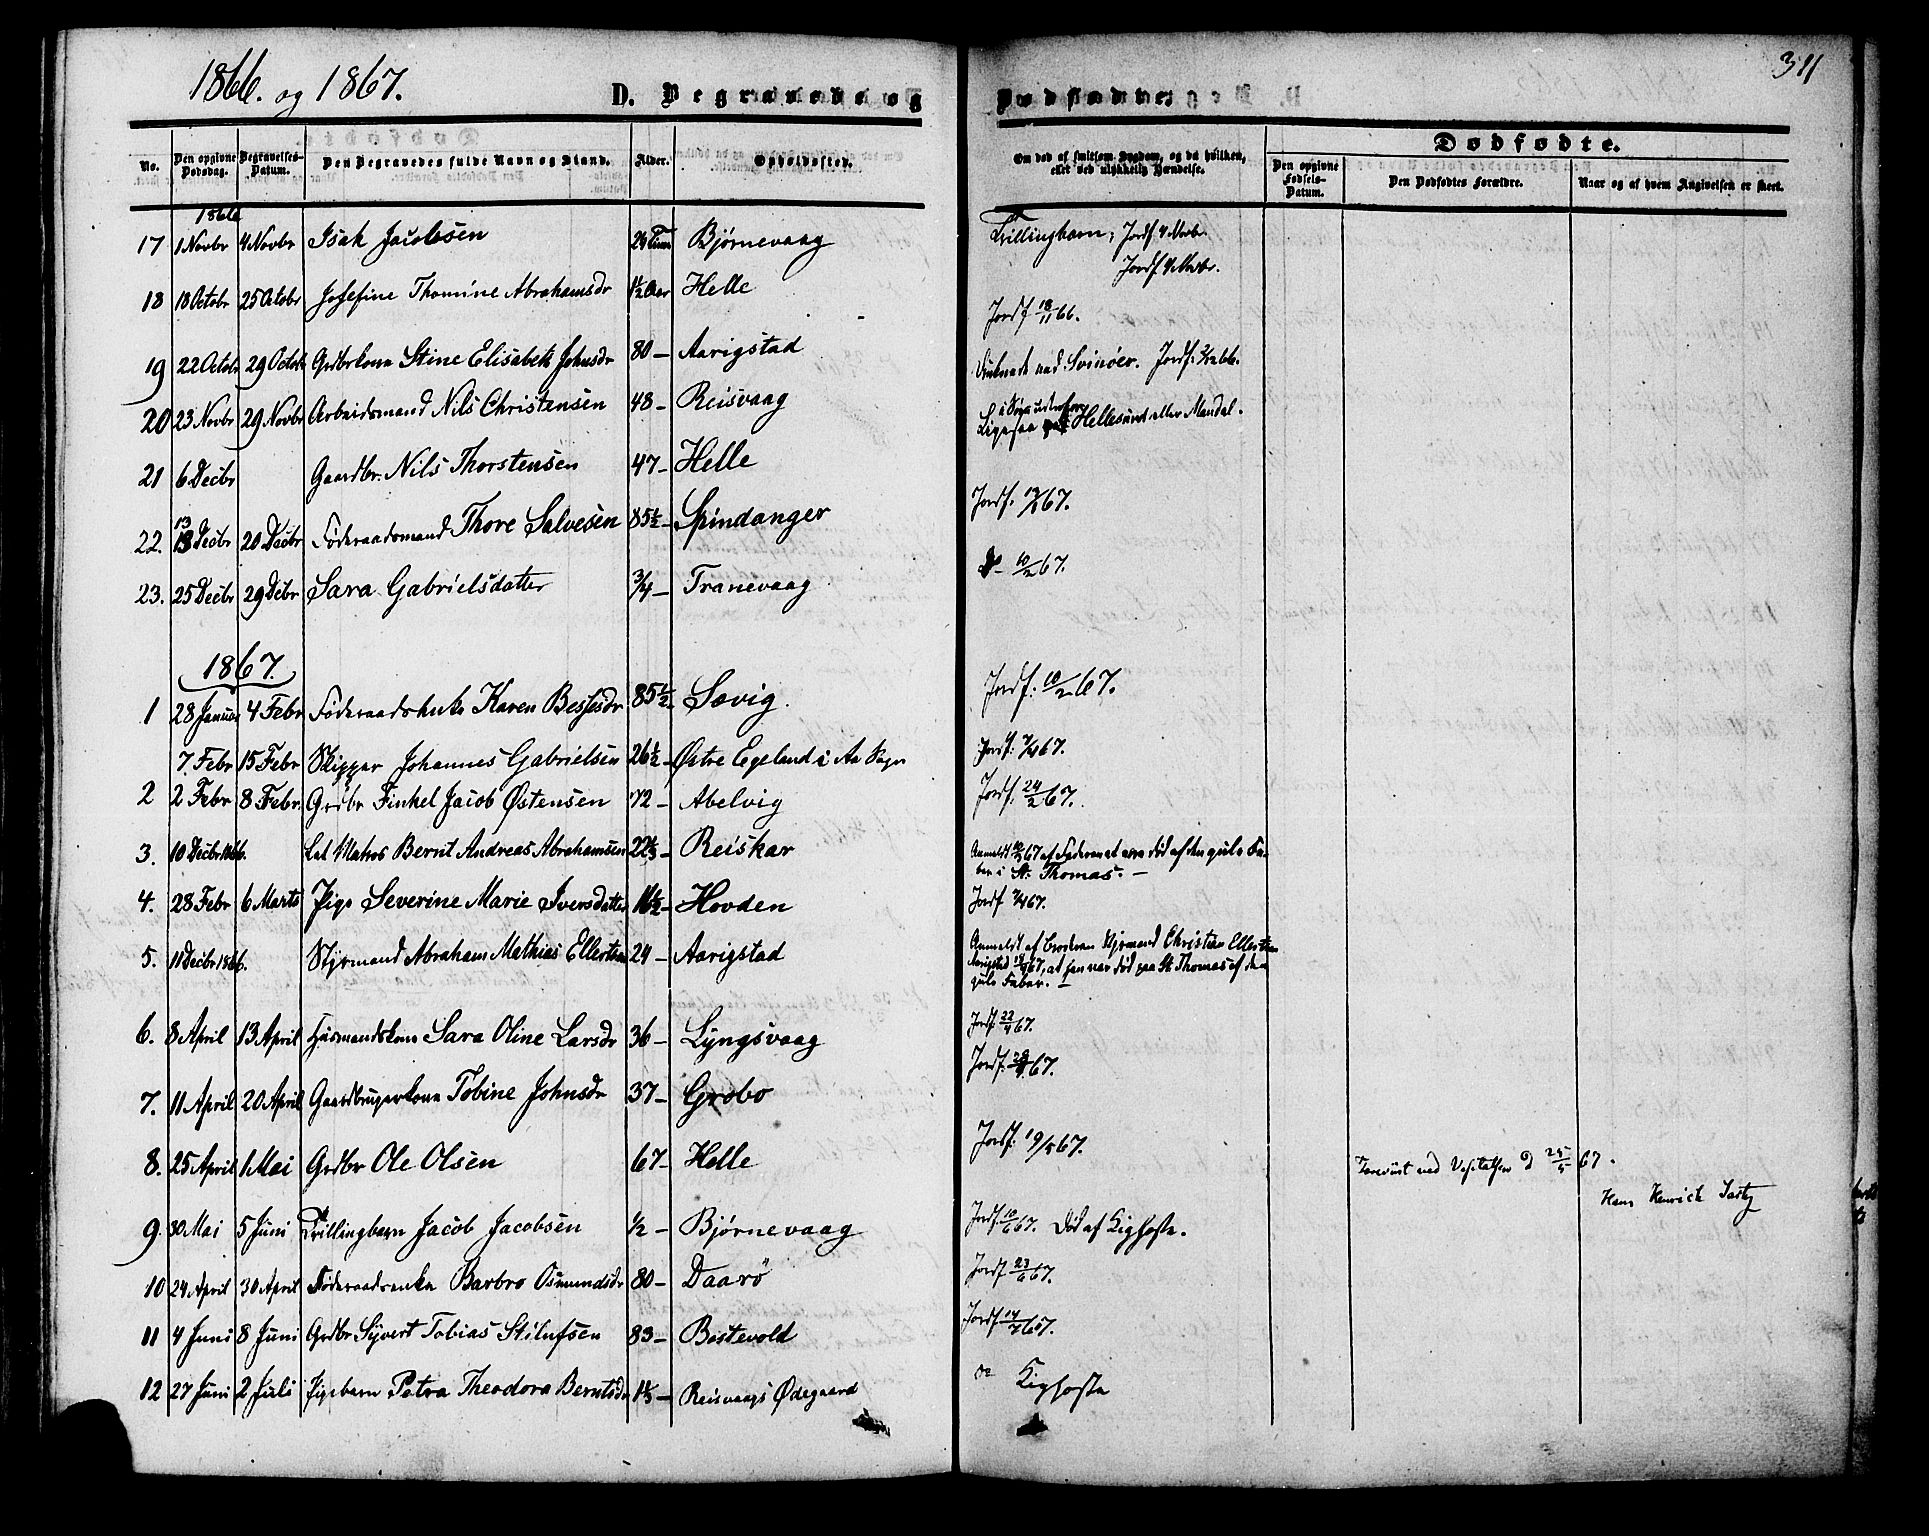 1866. og 1867.
D. Begravede og Dødfødte.
311
Dødfødte.
No. Den opgivne Dødsdag. Begravelses-Datum. Den Begravedes fulde Navn og Stand. Alder. Opholdssted. Om død af smitsom Sygdom, og da hvilken, eller ved ulykkelig Hændelse. Den opgivne Fødsels-Datum. Den Dødfødtes Forældre. Naar og af hvem Angivelsen er skeet.
1866
17 1 Novbr 4 Novbr Isak Jacobsen 24 Timer Bjørnevaag Trillingbarn; Jordf. 4 Novbr.
Jordf. 4 Novbr.
18 18 Octobr 25 Octobr Josefine Thomine Abrahamsdr 1½ Aar Helle Jordf 18/11 66.
19 22 Octobr 29 Octobr Grdbrkone Stine Elisabeth Johnsdr 80 – Aarigstad
20 23 Novbr 29 Novbr Arbeidsmand Nils Christensen 48 – Reisvaag Druknede ved Svinøer. Jordf: 2/12 66.
21 6 Decbr Gaardbr. Nils Thorstensen 47 – Helle Ligesaa i Søen udenfor Hellesund eller Mandal.
22. 13 Decbr 20 Decbr Føderaadsmand Thore Salvesen 85½ – Spindanger Jordf. 67.
23. 25 Decbr 29 Decbr Sara Gabrielsdatter ¾ – Tranevaag D – 10/2 67.
1867.
1 28 Januar 4 Febr Føderaadsenke Karen Bessesdr 85½ – Sævig. Jordf: 10/2 67.
7. Febr 15 Febr Skipper Johannes Gabrielsen 26½ – Østre Egeland i Aa Sogn Jordf: 7/4 67.
2 2 Febr 8 Febr. Grdbr Finkel Jacob Østensen 72 – Abelvig Jordf: 24/2 67.
3. 10 Decbr 1866. Let Matros Bernt Andreas Abrahamsen 22⅓ – Reiskar Anmeldt 67 af Faderen at være død af den gule Fe-
ber i St. Thomas. –
4. 28 Febr 6 Marts Pige Severine Marie Iversdatter 16½ – Hovden Jordf 7/4 67.
5. 11 Decbr 1866. Styrmand Abraham Mathias Ellertsen 24 – Aarigstad Anmeldt af Broderen Styrmand Christian Ellertsen
Aarigstad 67, at han var død paa St Thomas af den
gule Feber. –
6. 8 April 13 April Husmandskone Sara Oline Larsdr 36 – Lyngsvaag Jordf 22/4 67.
7. 11 April 20 April Gaardbrugerkone Tobine Johnsdr 37 – Grøbo Jordf. 28/4 67.
8. 25 April 1 Mai Grdbr Ole Olsen 67 – Helle Jordf: 19/5 67.
Foreviist ved Visitatsen d 25/5 67.
9. 30 Mai 5 Juni Trillingbarn Jacob Jacobsen ½ – Bjørnevaag Jordf. 10/6 67. Død af Kighoste.
10 24 April 30 April Føderaadsenke Barbro Osmundsdr 80 – Daarö Jordf 23/6 67.
11 4 Juni 8 Juni Grdbr Syvert Tobias Stilufsen 83 – Bestevold Jordf 14/7 67.
12 27 Juni 2 Juli Pigebarn Petra Theodora Berntsdr 1⅓ – Reisvaags Ødegaard do Kighoste